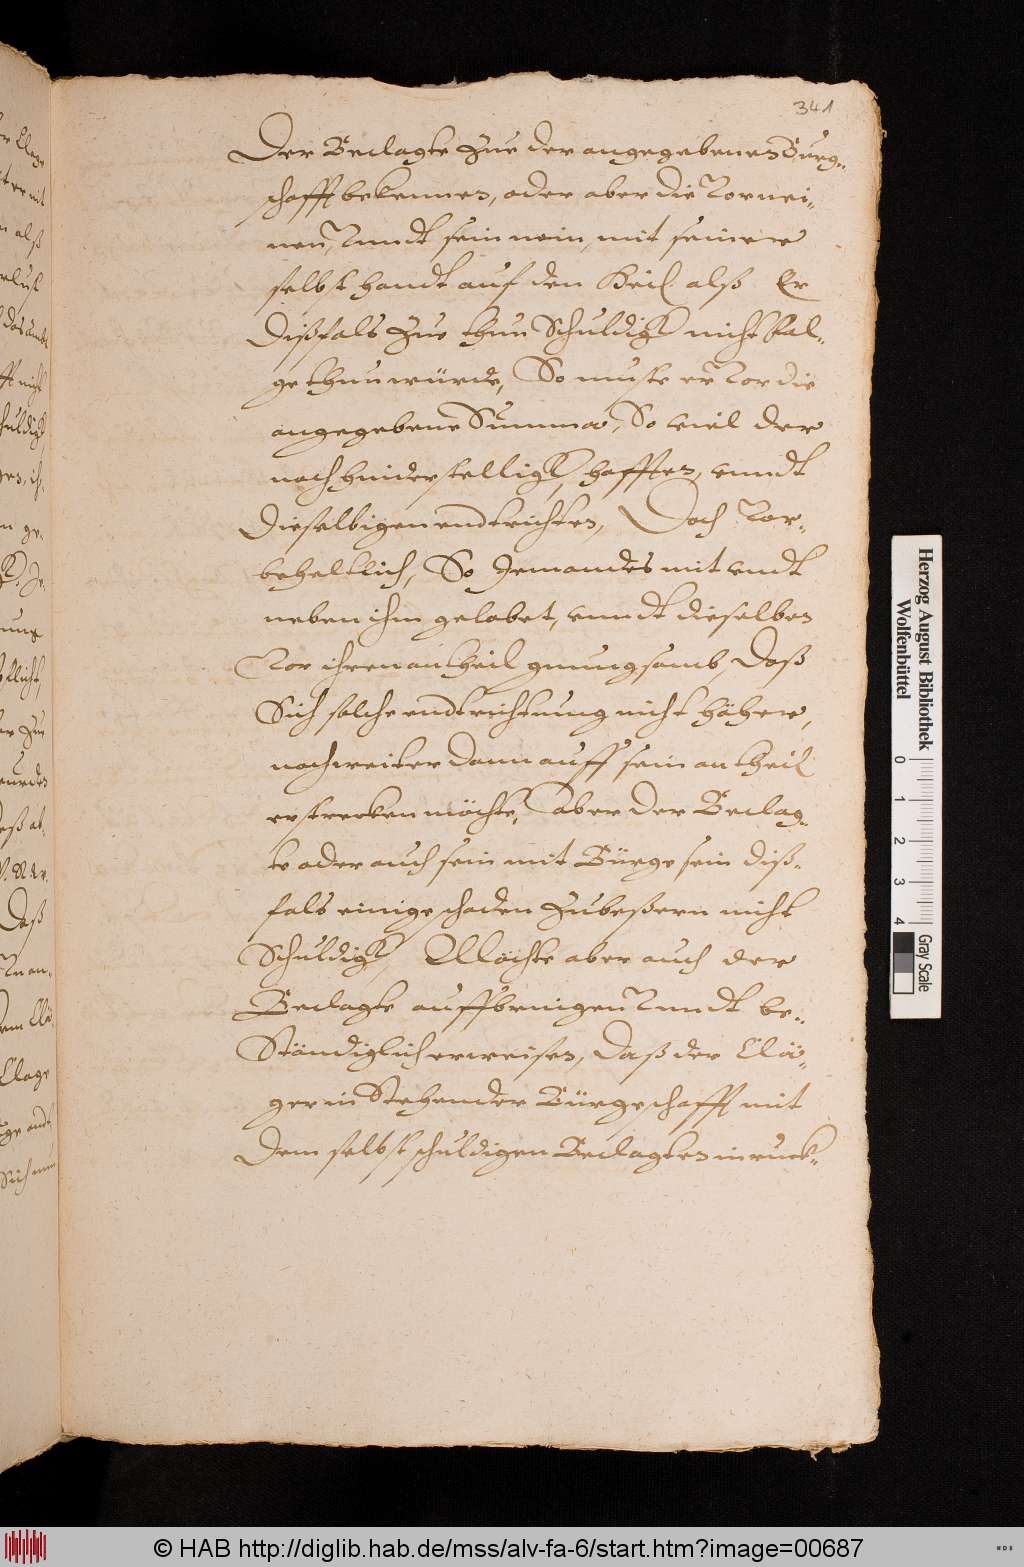 341
Der Beclagte Zue der angegebenen Burg-
schafft bekennen, oder aber die Vornei-
nen, Vundt sein nein, mit seiner
selbst handt auf den Heil. alß Er
Dißfals Zue thun Schuldigk nicht Fol-
ge thun würde, So muste er Vor die
angegebene Summa, So viel der
noch hinderstelligk, hafften, vundt
Dieselbigen endtrichten, Doch Vor-
beheltlich, So Jemandes mit vndt
neben ihm gelobet, vundt dieselben
Vor ihren antheil gnungsamb, Daß
Sich solche endtrichtung nicht höher,
noch weiter dann auff sein antheil
erstrecken möchte, aber der Beclag-
te oder auch sein mit Bürge sein diß-
fals einige schaden Zubeßern nicht
Schuldigk, Möchte aber auch der
Beclagte auffbringen Vundt be-
Ständiglich erweisen, Daß der Clä-
ger in Stehender Bürgeschafft mit
Dem selbst schuldigen Beclagten in ruck-
Herzog August Bibliothek
Wolfenbüttel
0 1 2 3 4
Gray Scale
© HAB http://diglib.hab.de/mss/alv-fa-6/start.htm?image=00687